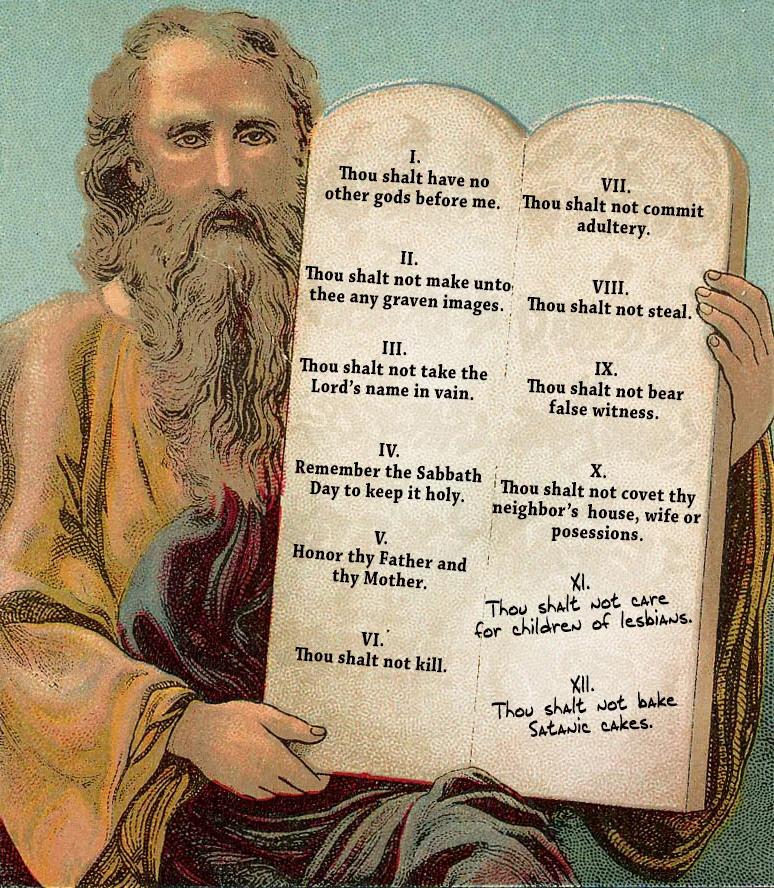 I.
Thou shalt have no
other gods before me.
II.
Thou shalt not make unto
thee any graven images.
III.
Thou shalt not take the
Lord's name in vain.
IV.
Remember the Sabbath
Day to keep it holy.
V.
Honor thy Father and
thy Mother.
VI.
Thou shalt not kill.
VII.
Thou shalt not commit
adultery.
VIII.
Thou shalt not steal.
IX.
Thou shalt not bear
false witness.
X.
Thou shalt not covet thy
neighbor's house, wife or
posessions.
XI.
Thou shalt not care
for children of lesbians.
XII.
Thou shalt not bake
Satanic cakes.